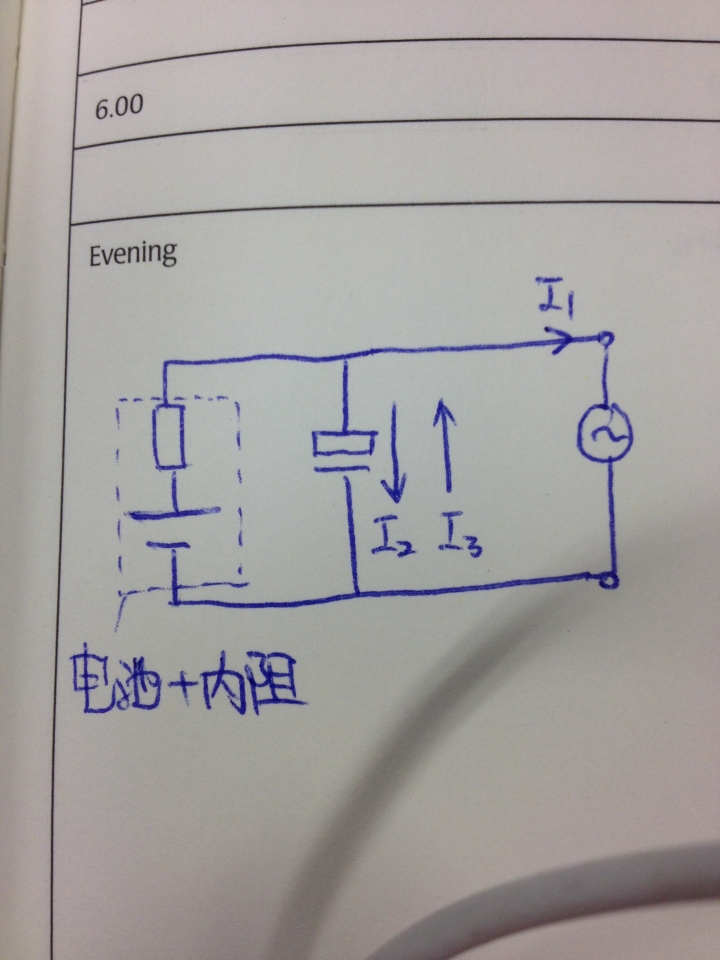 6.00
Evening
I₁
I₂ I₃
电池+内阻